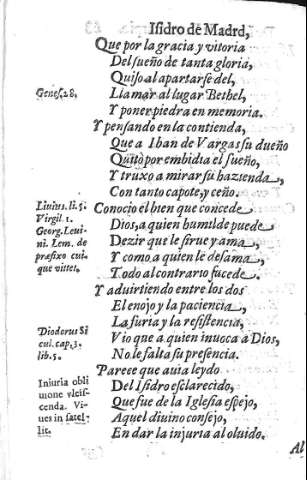 Isidro de Madrd,
Que por la gracia y vitoria
Del sueño de tanta gloria,
Quiso al apartarse del,
Genes. 28.
Llamar al lugar Bethel,
Y poner piedra en memoria.
Y pensando en la contienda,
Que a Iban de Vargas su dueño
Quitò por embidia el sueño,
Y truxo a mirar su hazienda,
Con tanto capote, y ceño.
Liuius. li. 5.
Virgil. 1.
Georg. Leui-
ni. Lem. de
præfixo cui-
que vittę,
Conocio el bien que concede
Dios, a quien humilde puede
Dezir que le sirue y ama,
Y como a quien le desama,
Todo al contrario sucede.
Y aduirtiendo entre los dos
El enojo y la paciencia,
La furia y la resistencia,
Diodorus Si
cul. cap. 3.
lib. 5.
Vio que a quien inuoca a Dios,
No le falta su presencia.
Parece que auia leydo
Iniuria obli
uione vlcis-
cenda. Vi-
ues in satel-
lit.
Del Isidro esclarecido,
Que fue de la Iglesia espejo,
Aquel diuino consejo,
En dar la injuria al oluido.
Al